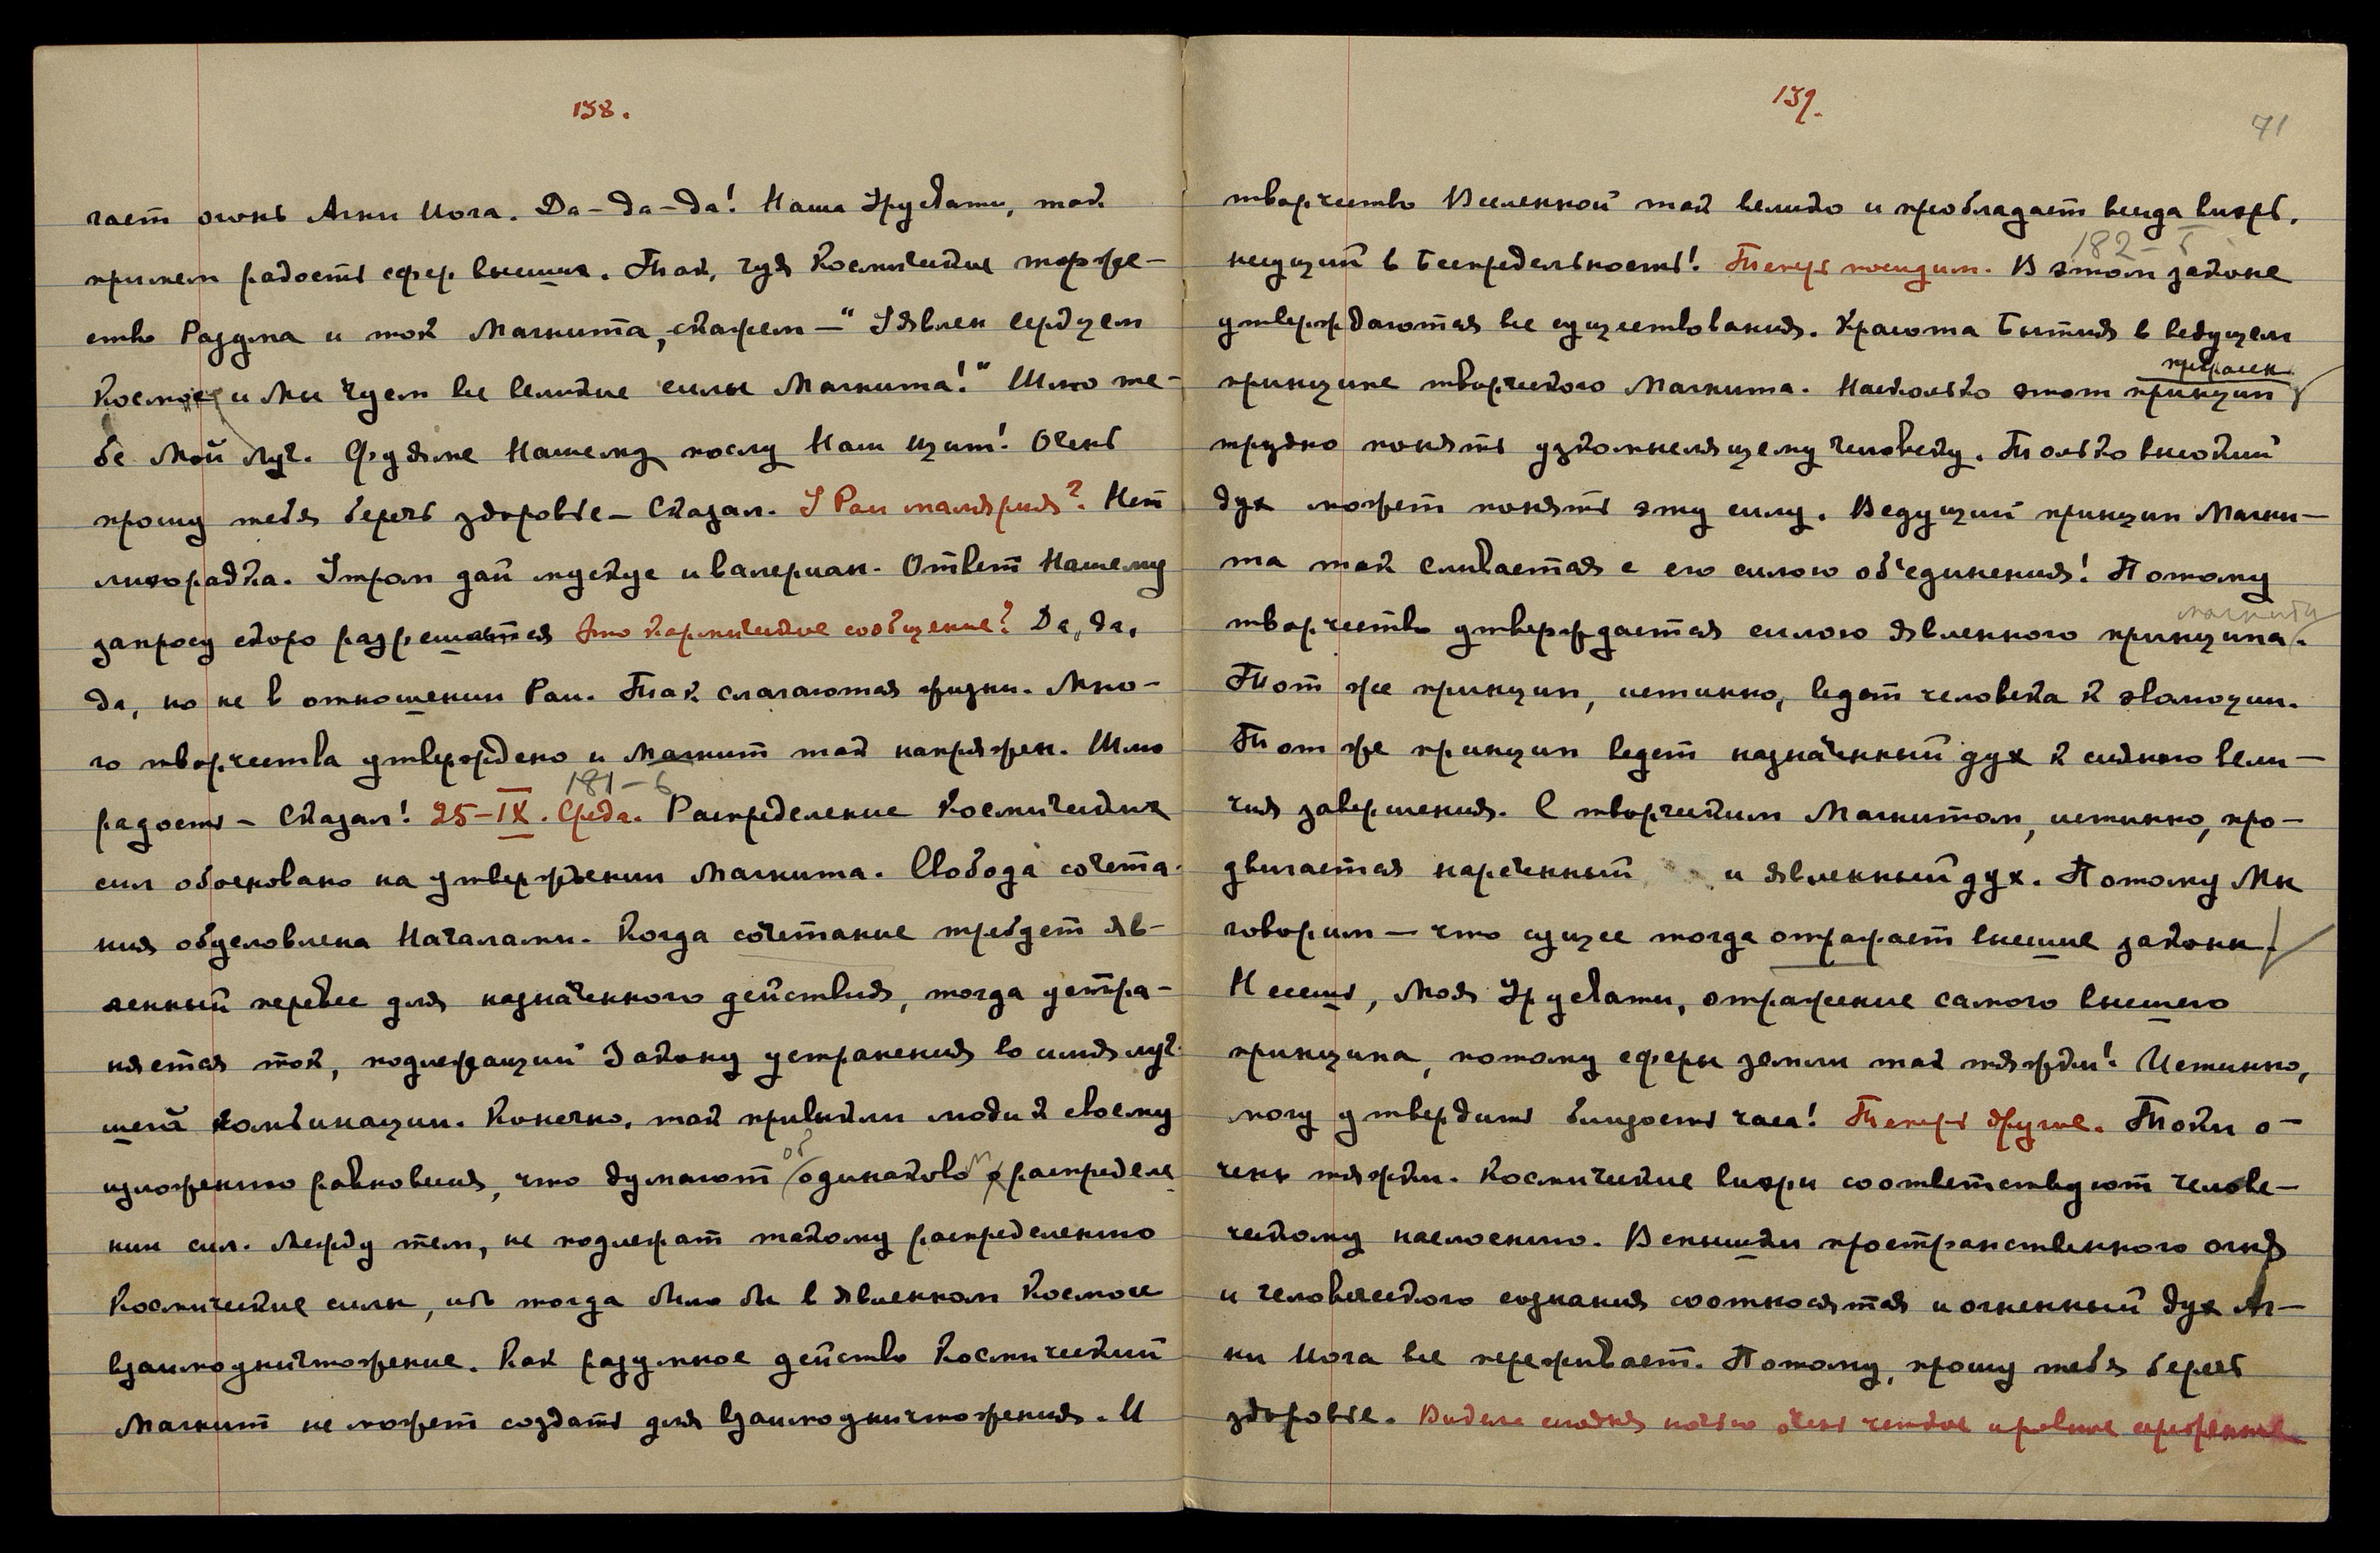 138.
чает огонь Агни Йога. Да-да-да! Наша Урусвати, так
примем радость сфер высших. Так, чуя Космические торже-
ство Разума и ток Магнита, скажем — "Явлен сердцем
Космос и Мы чуем все великие силы Магнита!" Шлю те-
бе Мой Луч. Фуяме Нашему послу Наш щит! Очень
прошу тебя беречь здоровье — Сказал. У Раи малярия? Нет
лихорадка. Утром дай мускус и валериан. Ответ Нашему
запросу скоро разрешается Это кармические сообщение? Да, да,
да, но не в отношении Раи. Так слагаются жизни. Мно-
го творчества утверждено и Магнит так напряжен. Шлю
181 - б
радость — Сказал! 25-IX. Среда. Распределение Космических
сил обосновано на утверждении Магнита. Свобода сочета-
ния обусловлена Началами. Когда сочетание требует яв-
ленный перевес для назначенного действия, тогда устра-
няется ток, подлежащий Закону устранения во имя луч-
шей комбинации. Конечно, так привыкли люди к своему
изложению равновесия, что думают об одинаковом распределе
нии сил. Между тем, не подлежат такому распределению
Космические силы, ибо тогда было бы в явленном Космосе
взаимоуничтожение. Как разумное действо Космический
Магнит не может создать для взаимоуничтожения. И
139.
71
творчество Вселенной так велико и преобладает всегда вихрь,
182 - б
несущий в Беспредельность! Теперь посидим. В этом законе
утверждаются все существования. Красота Бытия в ведущем
прекрасен
принципе творческого Магнита. Насколько этот принцип
трудно понять узкомыслящему человеку. Только высокий
дух может понять эту силу. Ведущий принцип Магни-
та так сливается с его силою об'единения! Потому
магнита
творчество утверждается силою явленного принципа.
Тот же принцип, истинно, ведет человека к эволюции.
Тот же принцип ведет назначенный дух к сиянию вели-
чия завершения. С творческим Магнитом, истинно, про-
двигается нареченный и явленный дух. Потому Мы
говорим — что сущее тогда отражает высшие законы.
Несешь, Моя Урусвати, отражение самого высшего
принципа, потому сферы земли так тяжки! Истинно,
могу утвердить близость часа! Теперь другое. Токи о-
чень тяжки. Космические вихри соответствуют челове-
ческому наслоению. Вспышки пространственного огня
и человеческого сознания соотносятся и огненный дух Аг-
ни Йога все переживает. Потому, прошу тебя беречь
здоровье. Видела сегодня ночью очень четкое и ровное